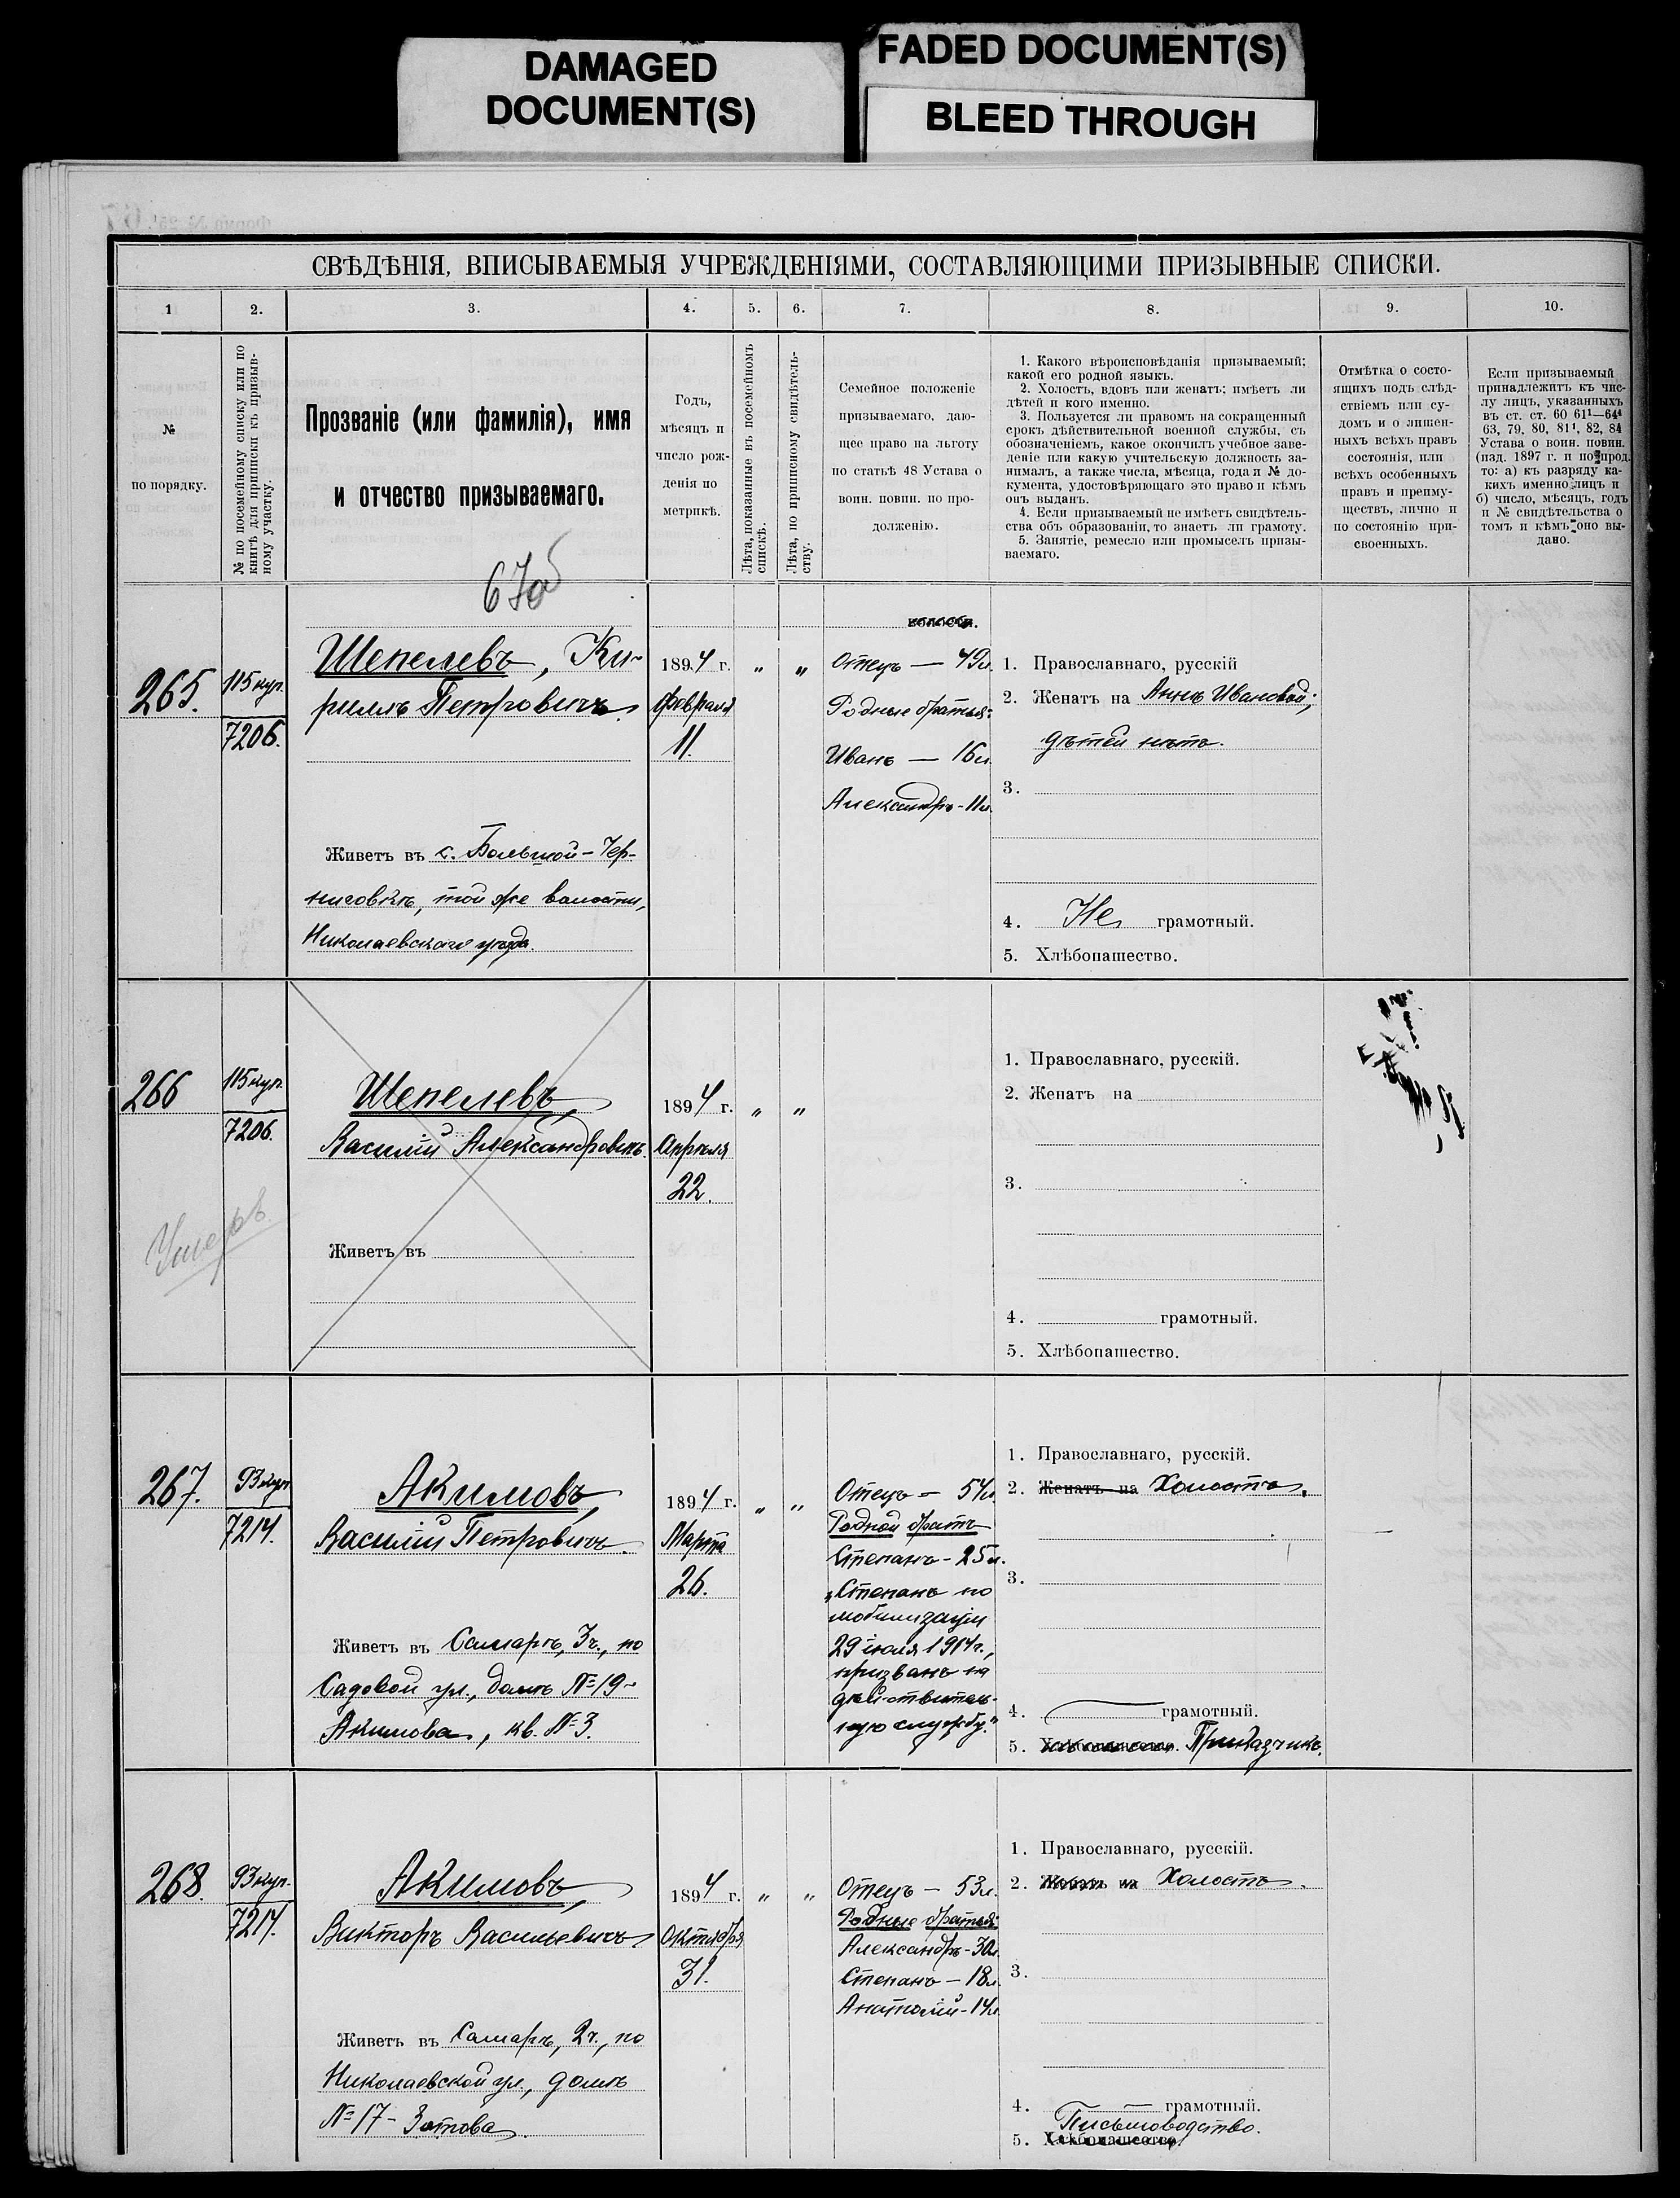 DAMAGED
DOCUMENT(S)
FADED DOCUMENT(S)
BLEED THROUGH
СВѢДѢНІЯ, ВПИСЫВАЕМЫЯ УЧРЕЖДЕНІЯМИ, СОСТАВЛЯЮЩИМИ ПРИЗЫВНЫЕ СПИСКИ.
1
2.
3.
4.
5.
6.
7.
8.
9.
10.
№
по порядку.
№ по посемейному списку или по
книгѣ для приписки къ призыв-
ному участку.
Прозваніе (или фамилія), имя
и отчество призываемаго.
Годъ,
мѣсяцъ и
число рож-
денія по
метрикѣ.
Лѣта, показанные въ посемейномъ
спискѣ.
Лѣта, по приписному свидѣтель-
ству.
Семейное положеніе
призываемаго, даю-
щее право на льготу
по статьѣ 48 Устава о
воин. повин. по про-
долженію.
1. Какого вѣроисповѣданія призываемый;
какой его родной языкъ.
2. Холостъ, вдовъ или женатъ; имѣетъ ли
дѣтей и кого именно.
3. Пользуется ли правомъ на сокращенный
срокъ дѣйствительной военной службы, съ
обозначеніемъ, какое окончилъ учебное заве-
деніе или какую учительскую должность за-
нималъ, а также числа, мѣсяца, года и № до-
кумента, удостовѣряющаго это право и кѣмъ
онъ выданъ.
4. Если призываемый не имѣетъ свидѣтель-
ства объ образованіи, то знаетъ ли грамоту.
5. Занятіе, ремесло или промыселъ призы-
ваемаго.
Отмѣтка о состо-
ящихъ подъ слѣд-
ствіемъ или су-
домъ и о лишен-
ныхъ всѣхъ правъ
состоянія, или
всѣхъ особенныхъ
правъ и преиму-
ществъ, лично и
по состоянію при-
своенныхъ.
Если призываемый
принадлежитъ къ чис-
лу лицъ, указанныхъ
въ ст. ст. 60 61¹—64⁴
63, 79, 80, 81¹, 82, 84
Устава о воин. повин.
(изд. 1897 г. и по прод.
то: а) къ разряду ка-
кихъ именно лицъ и
б) число, мѣсяцъ, годъ
и № свидѣтельства о
томъ и кѣмъ оно вы-
дано.
67об
265.
115 куп.
7206.
Шепелевъ, Ки-
риллъ Петровичъ.
Живетъ въ с. Большой-Чер-
ниговкѣ, той же волости,
Николаевскаго уѣзда.
1894 г.
Февраля
11.
" "
Отецъ — 49л.
Родные братья:
Иванъ — 16л.
Александръ - 11л.
1. Православнаго, русскій
2. Женатъ на Аннѣ Ивановой;
дѣтей нѣтъ.
3.
4. Не грамотный.
5. Хлѣбопашество.
266
115 куп.
7206.
Умеръ
Шепелевъ,
Василій Александровичъ.
Живетъ въ
1894 г.
Апрѣля
22.
" "
1. Православнаго, русскій.
2. Женатъ на
3.
4. грамотный.
5. Хлѣбопашество.
267.
93 куп.
7214.
Акимовъ,
Василій Петровичъ.
Живетъ въ Самарѣ, 3ч., по
Садовой ул., домъ №19-
Акимова, кв. №3.
1894 г.
Марта
26.
" "
Отецъ — 54л.
Родной братъ
Степанъ - 25л.
"Степанъ по
мобилизаціи
29 іюля 1914г.,
призванъ на
дѣйствитель-
ную службу."
1. Православнаго, русскій.
2. Женатъ на Холостъ.
3.
4. грамотный.
5. Хлѣбопашество. Приказчикъ.
268.
93 куп.
7214.
Акимовъ,
Викторъ Васильевичъ
Живетъ въ Самарѣ, 2ч., по
Николаевской ул., домъ
№17- Зотова.
1894 г.
Октября
31.
" "
Отецъ — 53л.
Родные братья:
Александръ - 30л.
Степанъ — 18л.
Анатолій - 14л.
1. Православнаго, русскій.
2. Женатъ на Холостъ.
3.
4. — грамотный.
Письмоводство.
5. Хлѣбопашество.